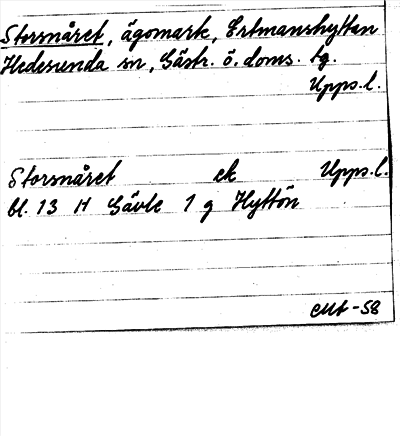 Storsnåret, ägomark, Ertmanshyttan
Hedesunda sn, Gästr. ö. doms. tg.
Upps. l.
Storsnåret ek Upps. l.
bl. 13 H Gävle 1 g Hyttön
-58